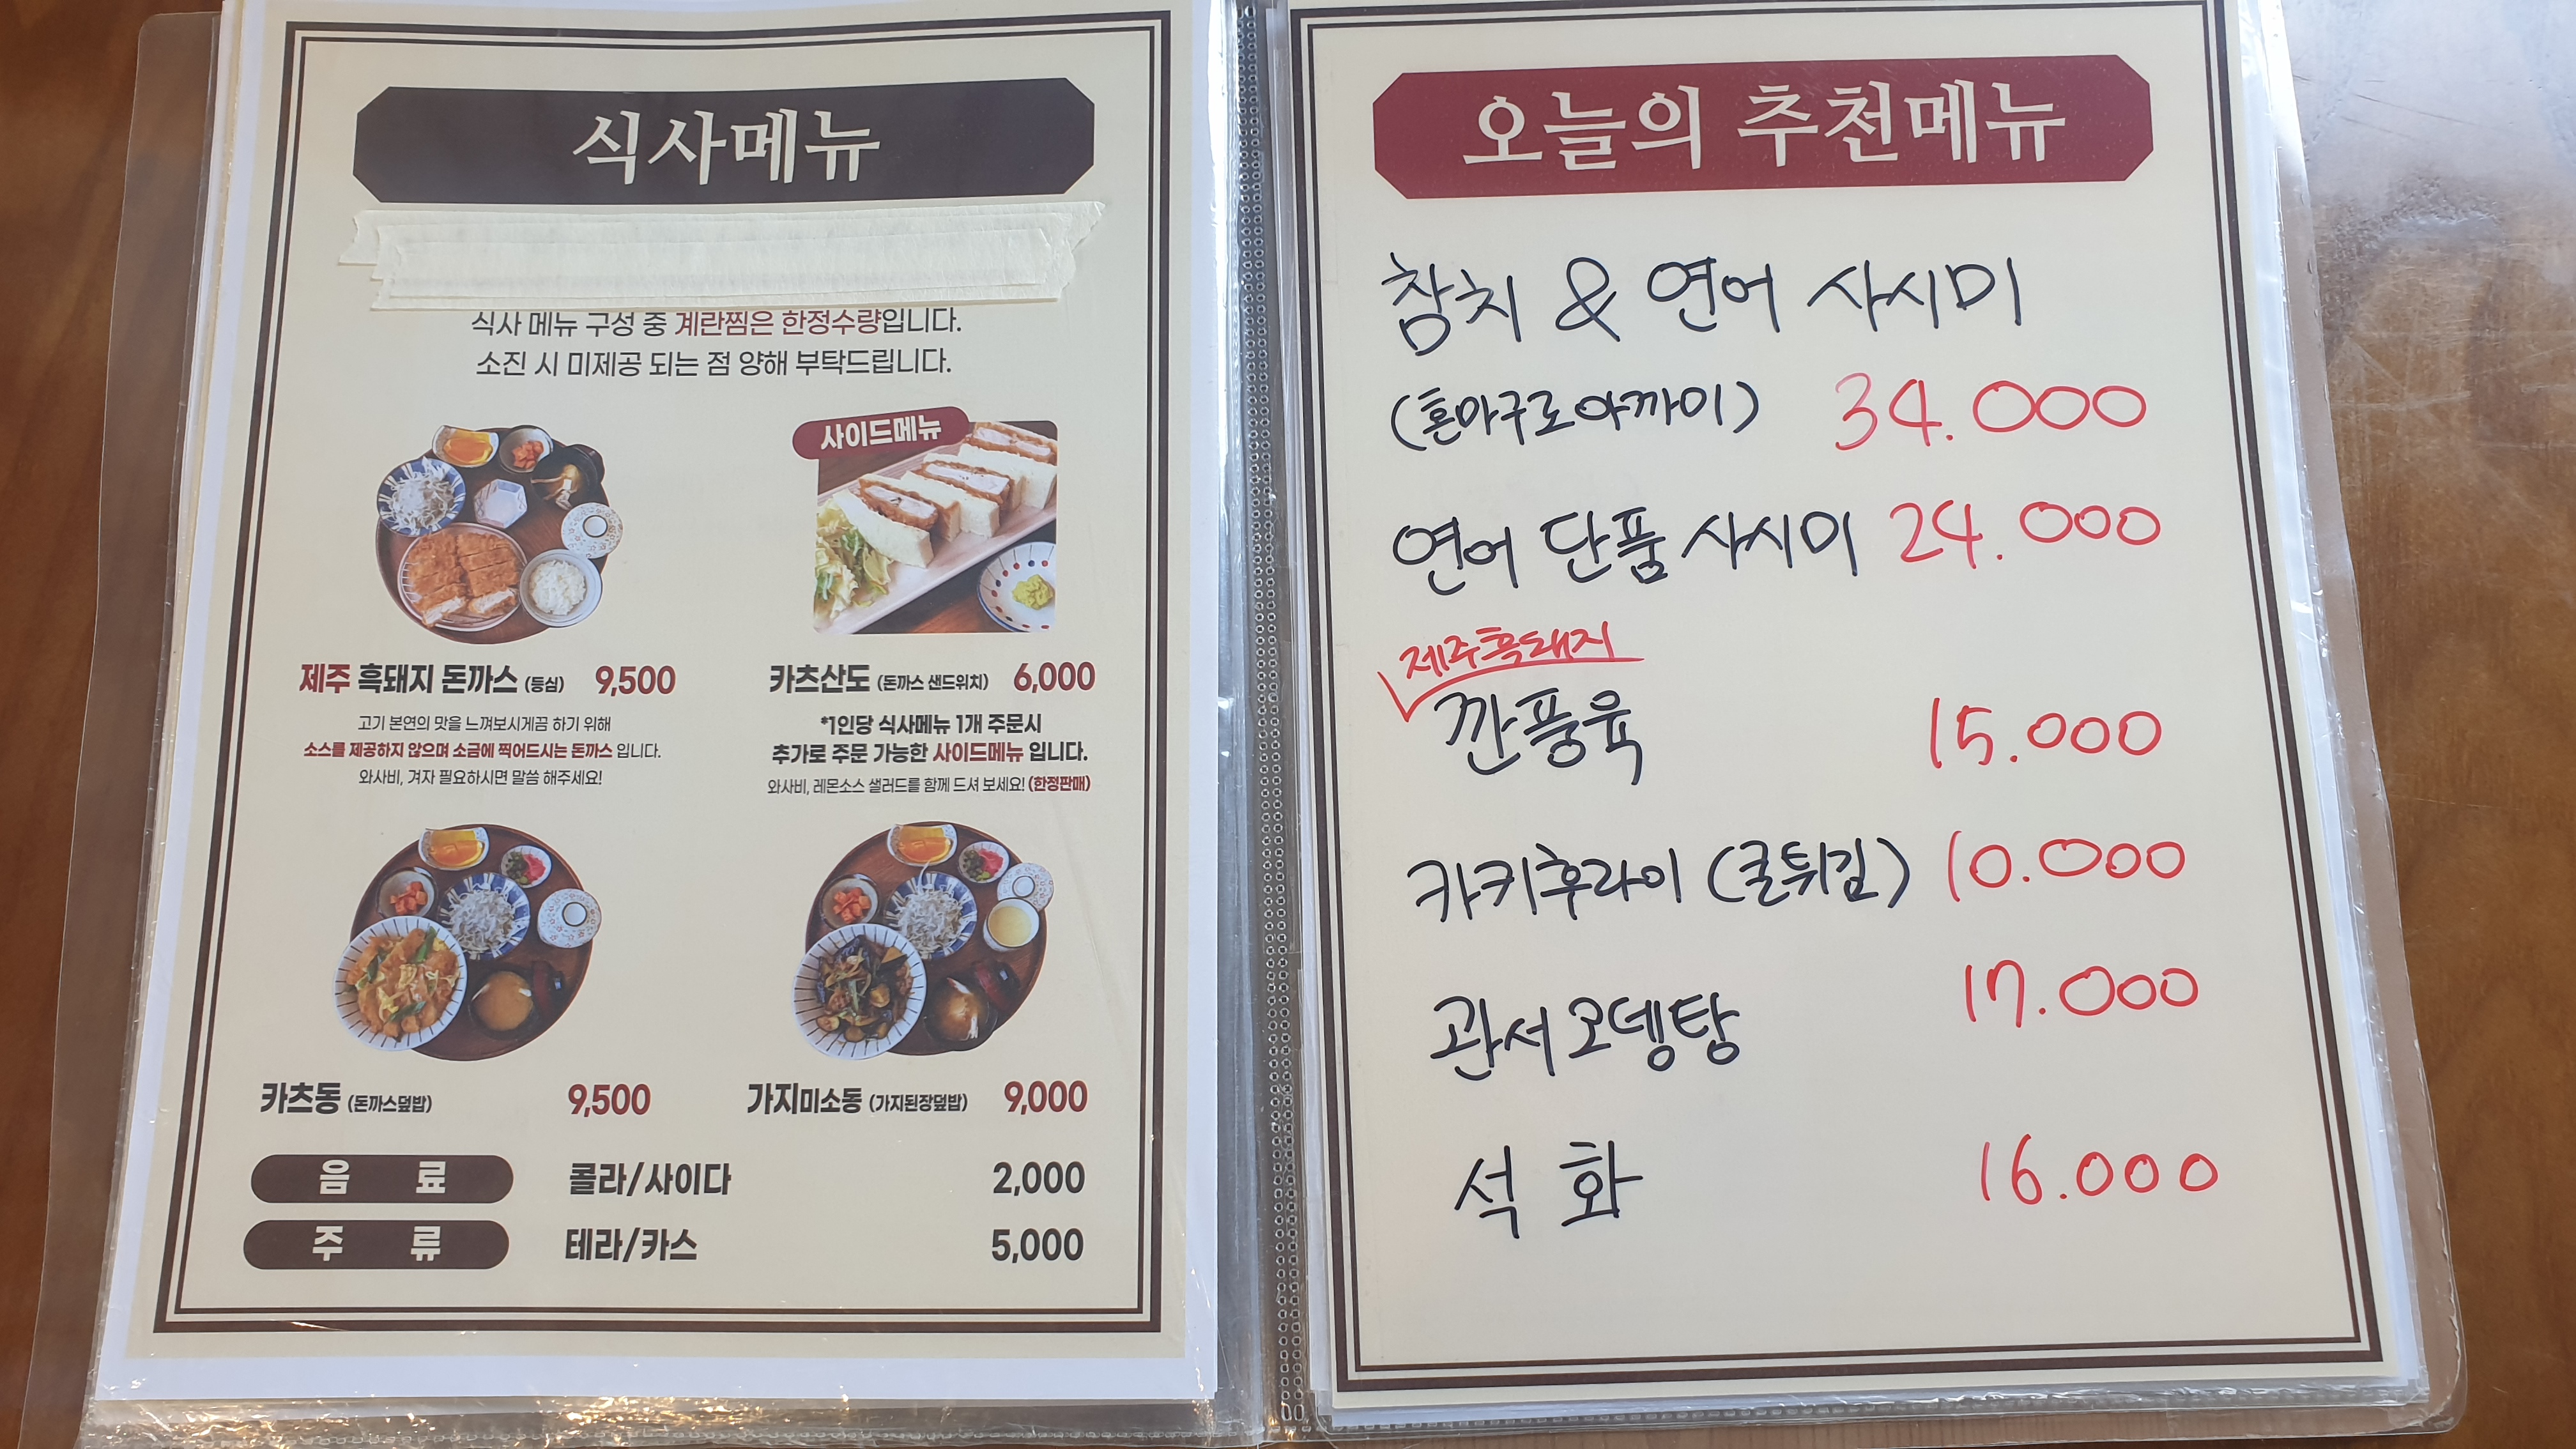 식사메뉴
식사 메뉴 구성 중 계란찜은 한정수량입니다.
소진 시 미제공 되는 점 양해 부탁드립니다.
사이드메뉴
제주 흑돼지 돈까스 (등심) 9,500
고기 본연의 맛을 느껴보시게끔 하기 위해
소스를 제공하지 않으며 소금에 찍어드시는 돈까스 입니다.
와사비, 겨자 필요하시면 말씀 해주세요!
카츠산도 (돈까스 샌드위치) 6,000
*1인당 식사메뉴 1개 주문시
추가로 주문 가능한 사이드메뉴 입니다.
와사비, 레몬소스 샐러드를 함께 드셔 보세요! (한정판매)
카츠동 (돈까스덮밥) 9,500
가지미소동 (가지된장덮밥) 9,000
음 료 콜라/사이다 2,000
주 류 테라/카스 5,000
오늘의 추천메뉴
참치 & 연어 사시미
(혼마구로아까미) 34.000
연어 단품 사시미 24.000
제주흑돼지
깐풍육 15.000
카키후라이 (굴튀김) 10.000
관서오뎅탕 17.000
석화 16.000